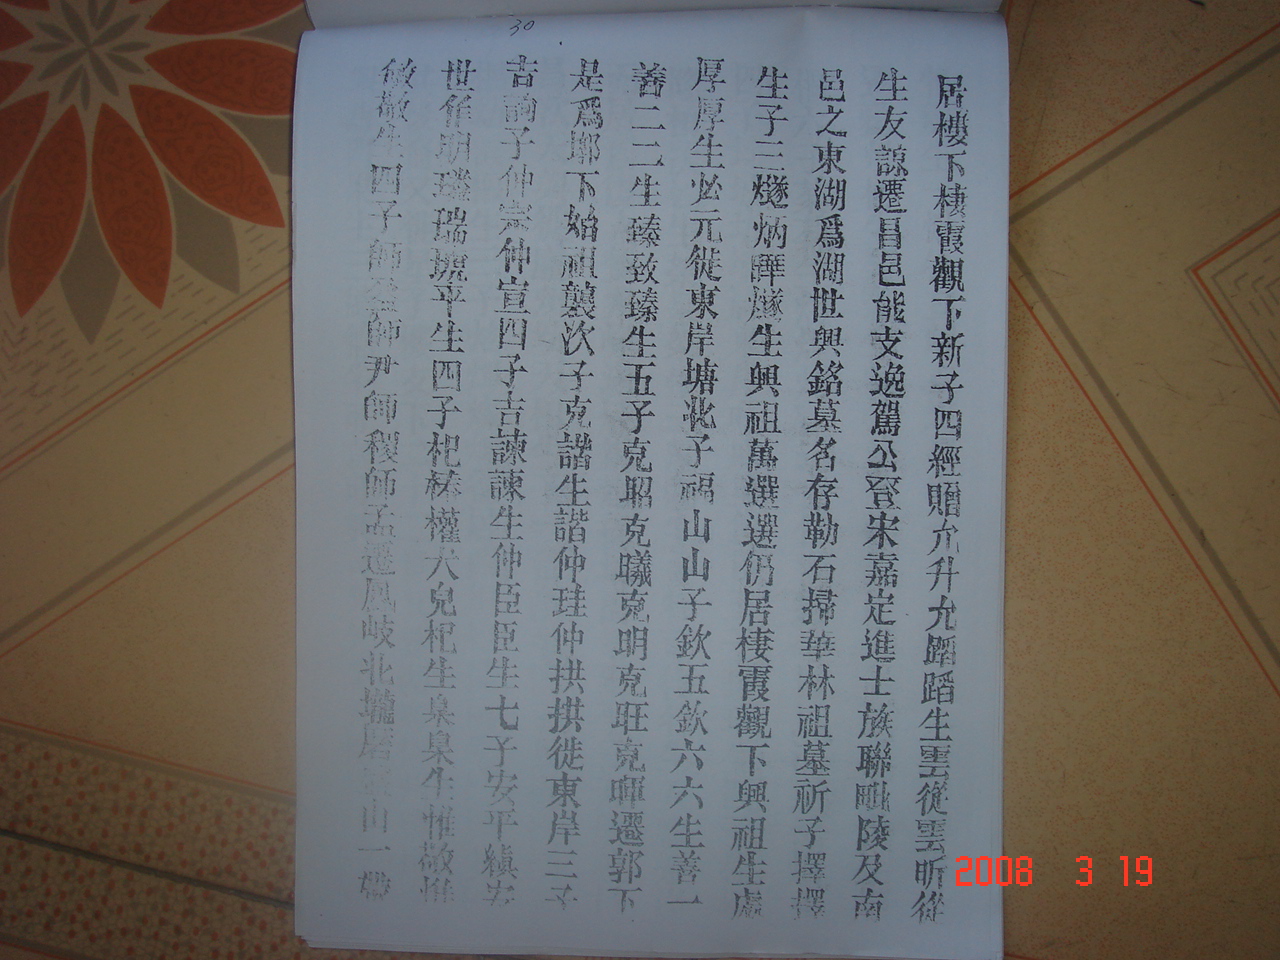 30
居樓下棲霞觀下新子四經贈允升允蹈蹈生雲從雲昕從
生友諒遷昌邑能支逸駕公登宋嘉定進士族聯毗陵及南
邑之東湖爲湖世興銘墓名存勒石掃華林祖墓祈子擇擇
生子三燧炳曄燧生興祖萬選選仍居棲霞觀下興祖生處
厚厚生必元徙東岸塘北子福山山子欽五欽六六生善一
善二二生臻致臻生五子克昭克曦克明克旺克暉遷郭下
是爲墎下始祖襲次子克諧生諧仲珪仲拱拱徙東岸三子
吉諭子仲宗仲宣四子吉諫諫生仲臣臣生七子安平縝安
世隹明璡瑞琥平生四子杞椿權犬兒杞生臬臬生惟敬惟
敏敬生四子師 師尹師稷師孟遷鳳岐北壠 山一帶
2008 3 19